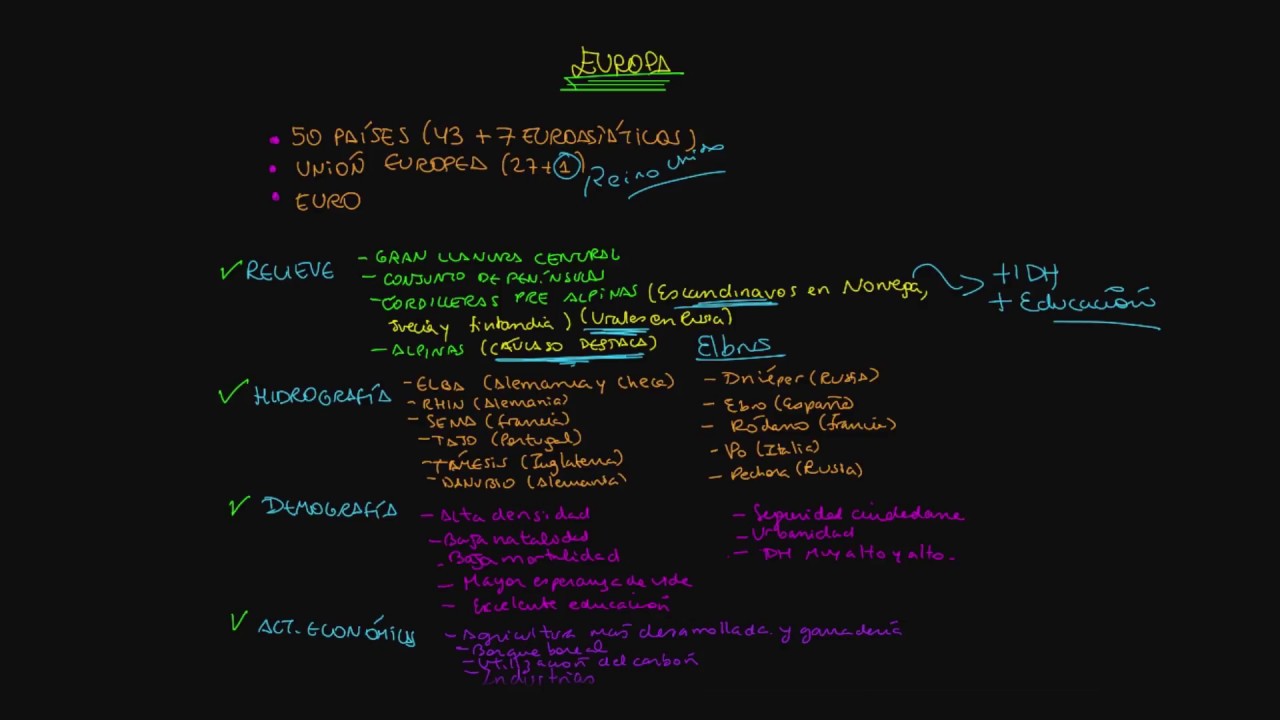 EUROPA
• 50 PAÍSES (43 + 7 EUROASIÁTICOS)
• UNIÓN EUROPEA (27+1) Reino Unido
• EURO
✓ RELIEVE
- GRAN LLANURA CENTRAL
- CONJUNTO DE PENÍNSULAS
- CORDILLERAS PRE ALPINAS (Escandinavos en Noruega,
Suecia y finlandia) (Urales en Rusia)
- ALPINAS (CÁUCASO DESTACA) Elbrus
+ IDH
+ Educación
✓ HIDROGRAFÍA
- ELBA (Alemania y Checa)
- RHIN (Alemania)
- SENA (francia)
- TAJO (Portugal)
- TÁMESIS (Inglaterra)
- DANUBIO (Alemania)
- Dniéper (RUSIA)
- Ebro (España)
- Ródano (francia)
- Po (Italia)
- Pechora (Rusia)
✓ DEMOGRAFÍA
- Alta densidad
- Baja natalidad
- Baja mortalidad
- Mayor esperanza de vida
- Excelente educación
- Seguridad ciudadana
- Urbanidad
- DH Muy alto y alto.
✓ ACT. ECONÓMICAS
- Agricultura mas desarrollada y ganadería
- Bosque boreal
- Utilización del carbón
- Industrias